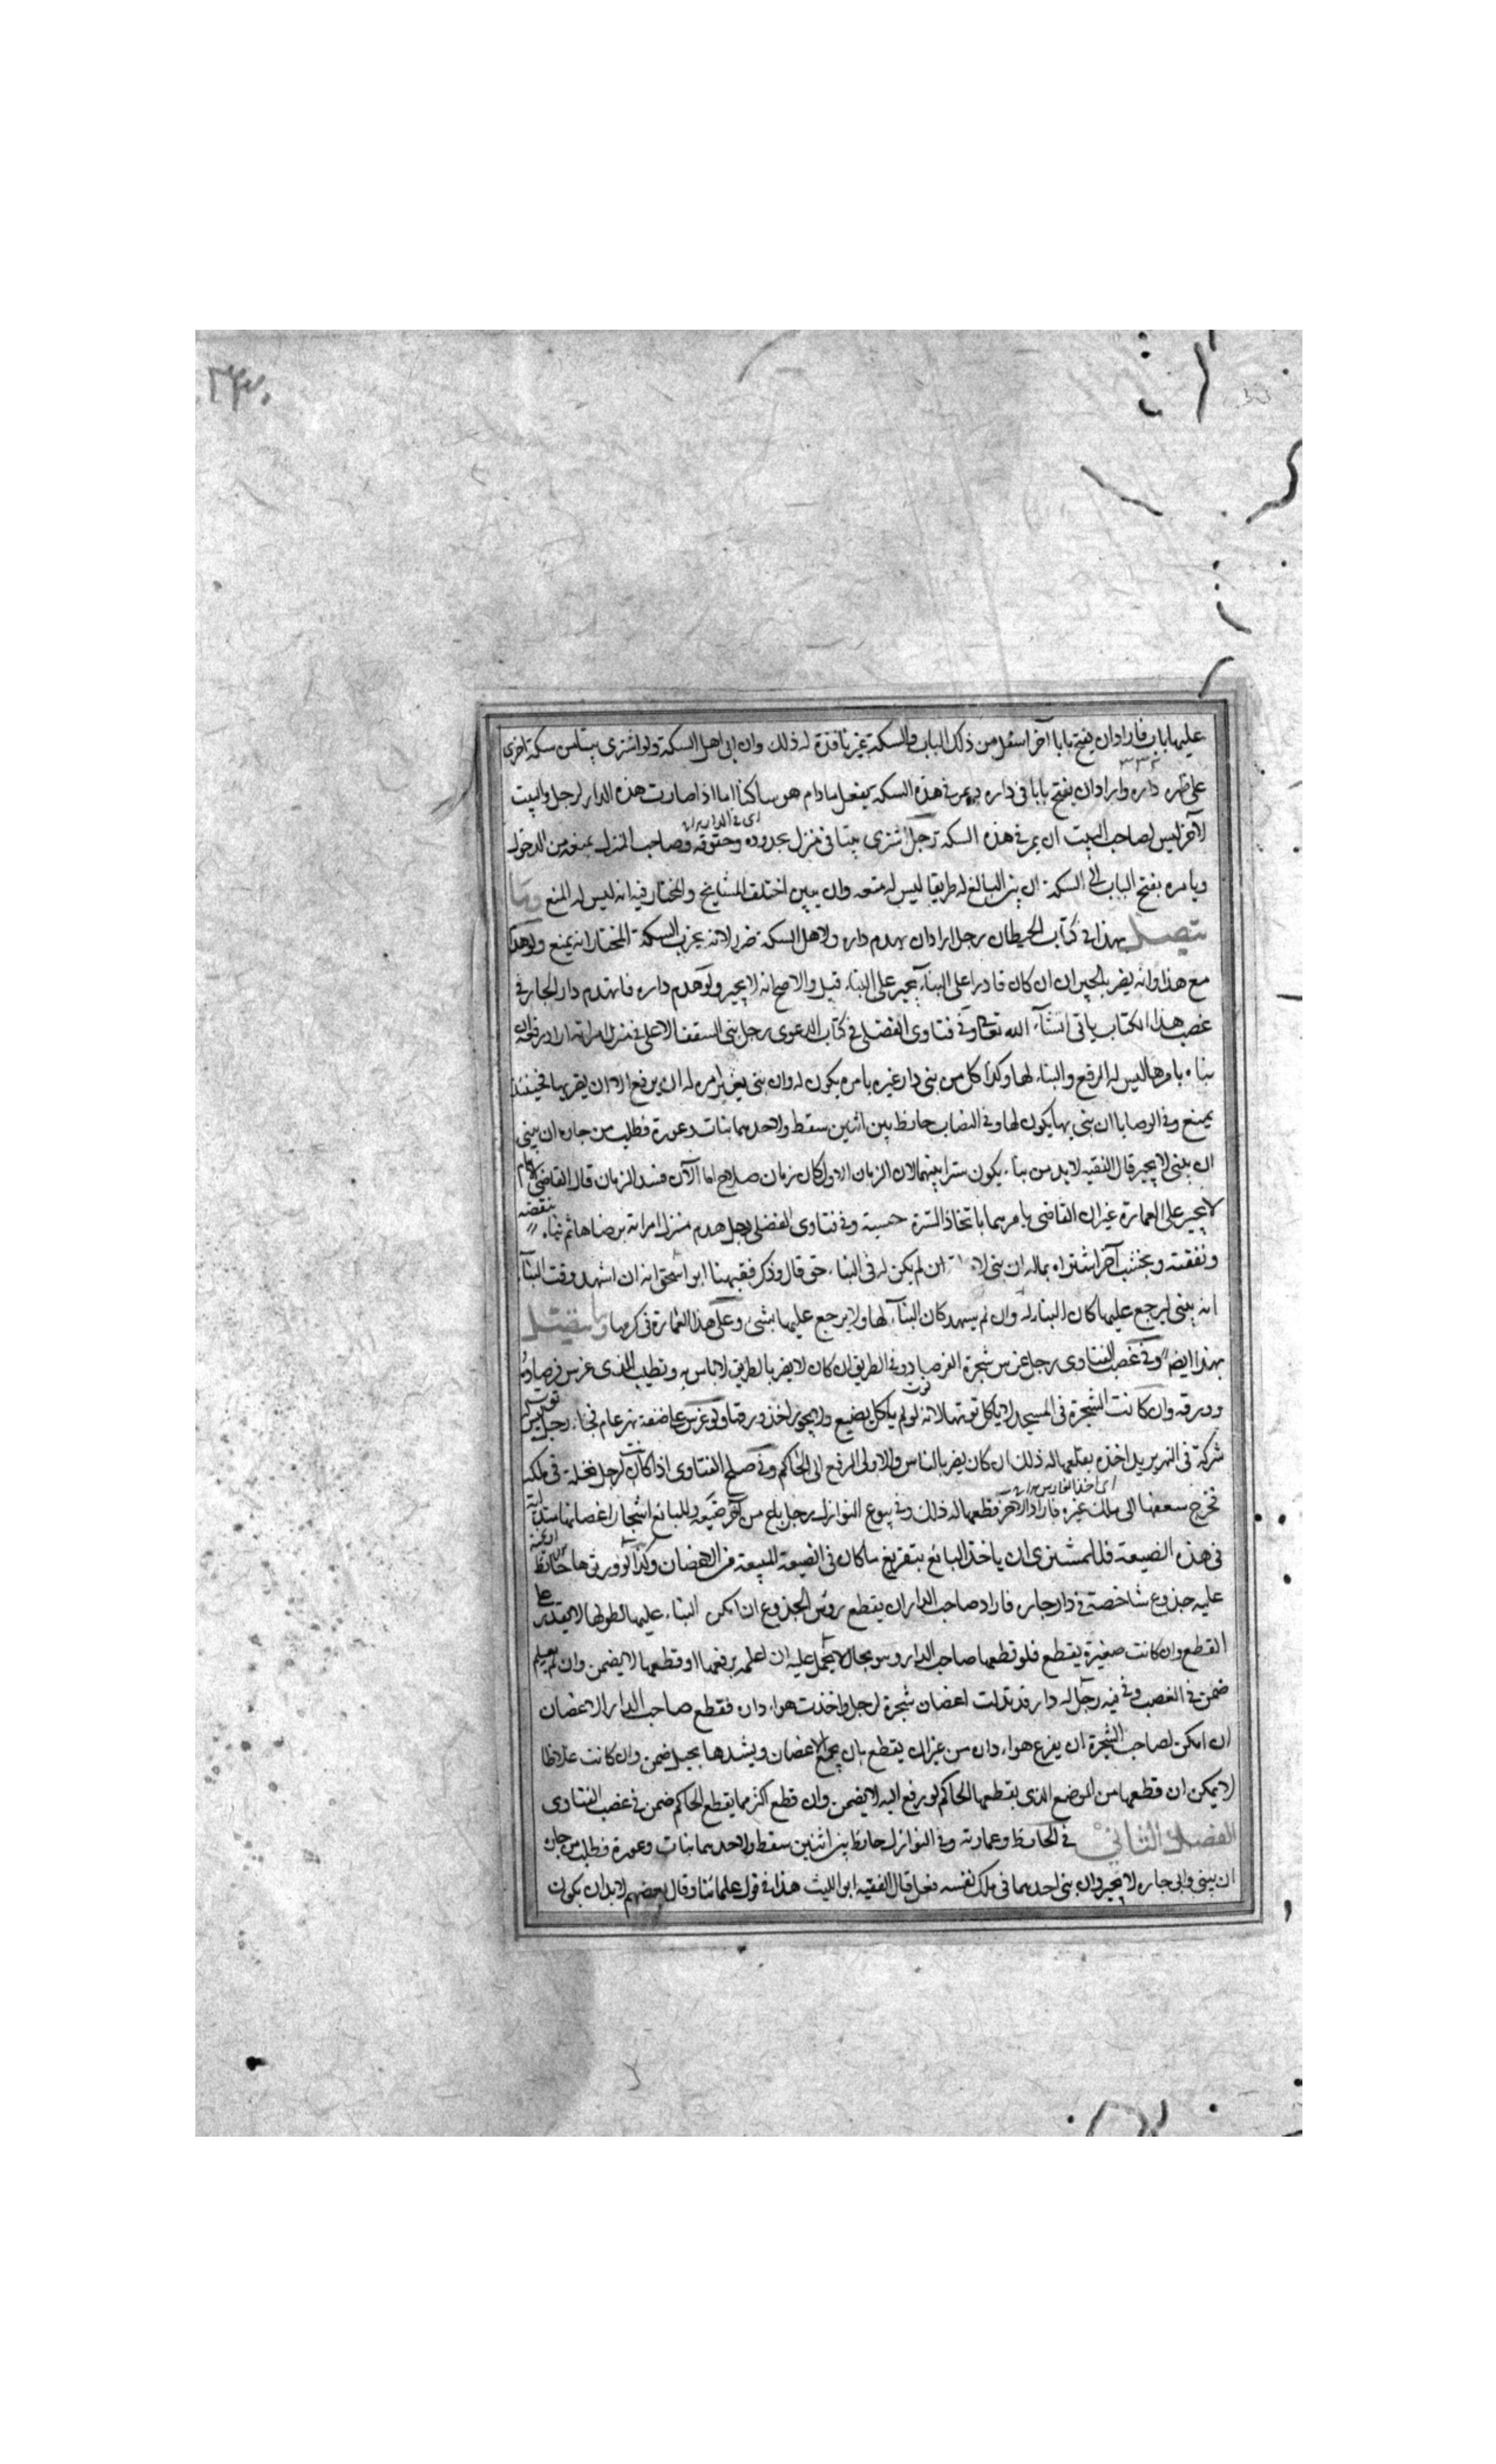 عليها باب فاراد ان يفتح بابا آخر اسفل من ذلك الباب والسكة غير نافذة له ذلك وان ابى اهل السكة ولو اشترى بيتا من سكة اخرى
على ظهر داره واراد ان يفتح بابا فى داره ويمر فى هذه السكة يفعل مادام هو ساكنا اما اذا صارت هذه الدار لرجل والبيت
لآخر ليس لصاحب البيت ان يمر فى هذه السكة رجل اشترى بيتا فى منزل بحدوده وحقوقه وصاحب المنزل يمنعه من الدخول
ويامره بفتح الباب الى السكة ان بين البائع له طريقا ليس له منعه وان لم يبين اختلف المشايخ والمختار فيه انه ليس له المنع ومما
يتصل بهذا فى كتاب الحيطان رجل اراد ان يهدم داره ولاهل السكة ضرر لانه يخرب السكة المختار انه يمنع ولو هدم
مع هذا وانه يضر بالجيران ان كان قادرا على البناء يجبر على البناء قيل والاصح انه لا يجبر ولو هدم داره فانهدم دار الجار فى
غصب هذا الكتاب ياتى انشاء الله تعالى وفى فتاوى الفضلى فى كتاب الدعوى رجل بنى السقف الاعلى فى منزل امراته اراد رفعه ان
بناه بامرها ليس له الرفع والبناء لها وكذا كل من بنى دار غيره بامره يكون له وان بنى بغير امره له ان يرفع الا ان يضر بها فحينئذ
يمنع وفى الوصايا ان بنى بها يكون لها وفى النصاب حائط بين اثنين سقط ولاحدهما بنات وعورة فطلب من جاره ان يبنى
ان يبنى لا يجبر قال الفقيه لا بد من بناء يكون سترا بينهما لان الزمان الاول كان زمان صلاح اما الآن فسد الزمان قال القاضى الامام
لا يجبر على العمارة غير ان القاضى يامرهما باتخاذ السترة حسبة وفى فتاوى الفضلى رجل هدم منزل امراته برضاها ثم بناه بنقضه
ونفقته وبخشب آخر اشتراه بماله ان بنى ان لم يكن له فى البناء حتى قال وذكر فقيهنا ابو اسحق انه ان اشهد وقت البناء
انه يبنى ليرجع عليها كان البناء له وان لم يشهد كان البناء لها ولا يرجع عليها بشئ وعلى هذا العمارة فى كرمها وما يتصل
بهذا ايضا وفى غصب الفتاوى رجل غرس شجرة الفرصاد فى الطريق ان كان لا يضر بالطريق لا باس به وتطيب للذى غرس فرصاده
وورقه وان كانت الشجرة فى المسجد لا ياكل توتها لانه لو لم ياكل يضيع ولا يجوز اخذ ورقها ولو غرس على ضفة نهر عام فجاء رجل ليس له
شركة فى النهر يريد اخذه بقلعها له ذلك ان كان يضر بالناس والاولى الرفع الى الحاكم وفى صلح الفتاوى اذا كانت لرجل نخلة فى ملكه
تخرج سعفها الى ملك غيره فاراد الآخر قطعها له ذلك وفى بيوع النوازل رجل باع من آخر ضيعة وللبائع اشجار اغصانها متدلية
فى هذه الضيعة فللمشترى ان ياخذ البائع بتفريغ ما كان فى الضيعة المبيعة من الاغصان وكذا لو ورثها حائط
عليه جذوع شاخصة فى دار جاره فاراد صاحب الدار ان يقطع رؤس الجذوع ان امكن البناء عليها لطولها لا يقدر على
القطع وان كانت صغيرة يقطع فلو قطعها صاحب الدار وهو بحال لا يحمل عليه ان اعلمه برفعها او قطعها لا يضمن وان لم يعلم
ضمن فى الغصب وفيه رجل له دار قد تدلت اغصان شجرة لرجل واخذت هواء داره فقطع صاحب الدار الاغصان
ان امكن لصاحب الشجرة ان يفرغ هواء داره من غير ان يقطع بان يجمع الاغصان ويشدها بحبل ضمن وان كانت غلاظا
لا يمكن ان قطعها من الموضع الذى يقطعها الحاكم لو رفع اليه لا يضمن وان قطع اكثر مما يقطع الحاكم ضمن فى غصب الفتاوى
الفصل الثانى فى الحائط وعمارته وفى النوازل حائط بين اثنين سقط ولاحدهما بنات وعورة فطلب من جاره
ان يبنى وابى جاره لا يجبر وان بنى احدهما فى ملك نفسه فعل قال الفقيه ابو الليث هذا فى قول علمائنا وقال بعضهم لا بد ان يكون